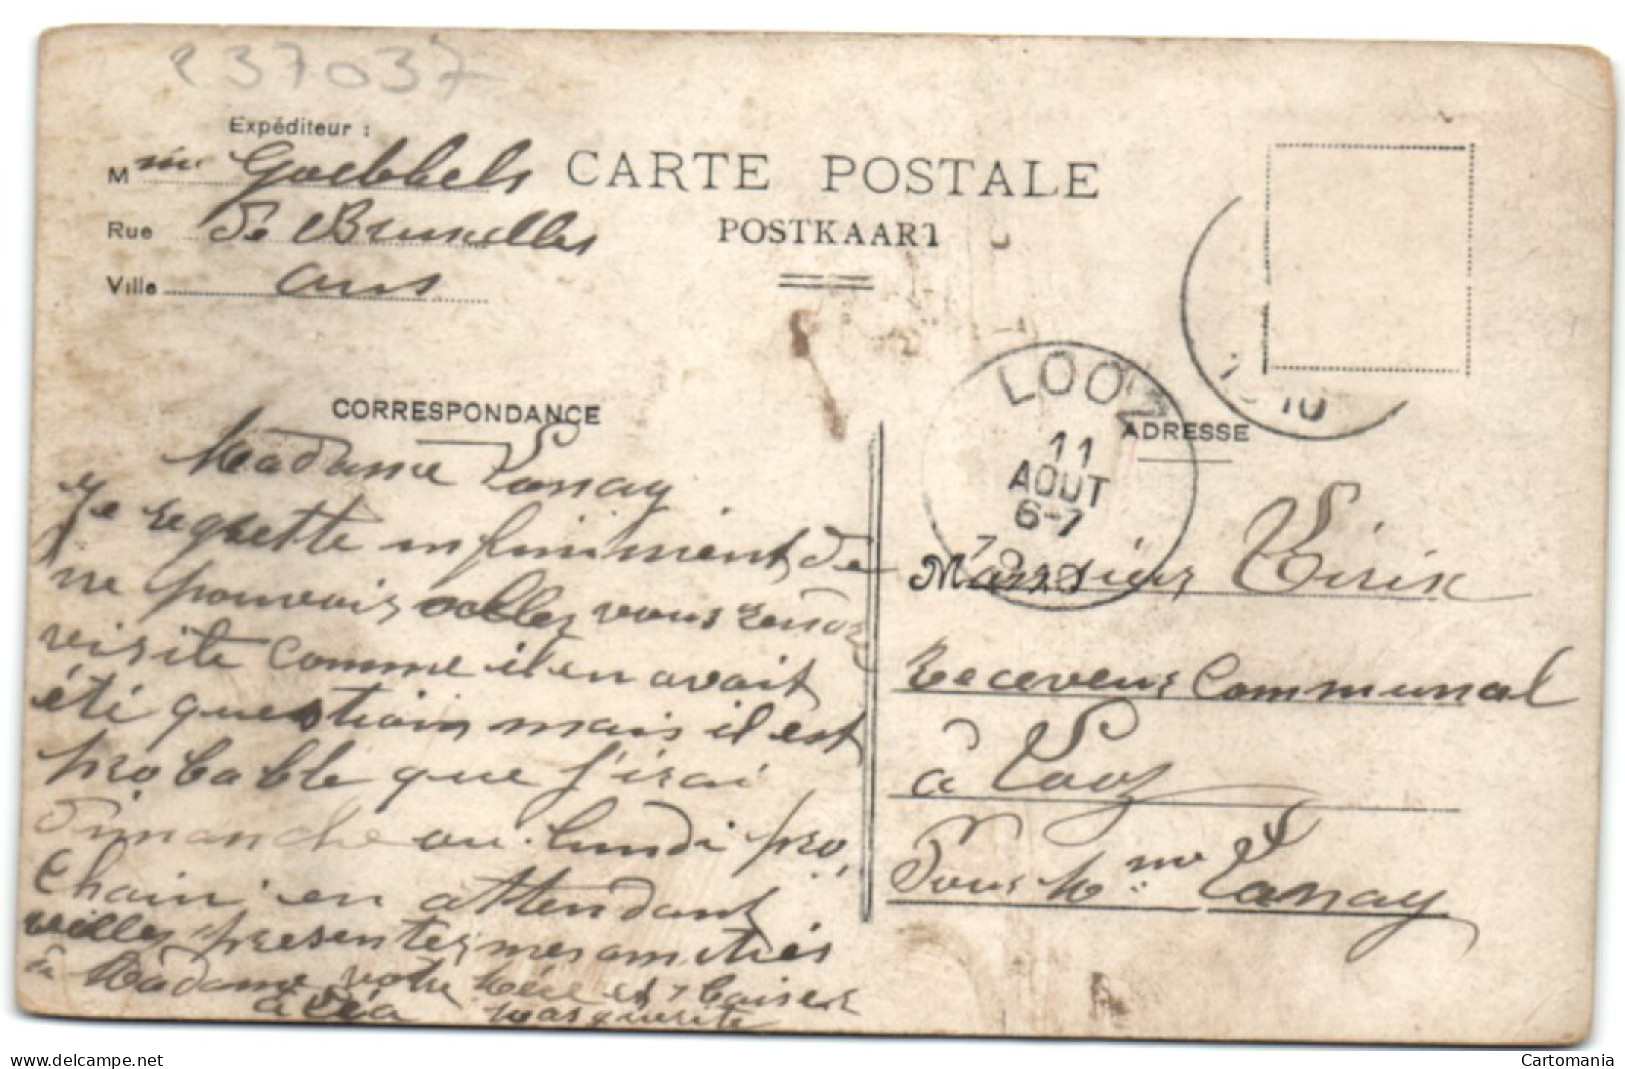 e37037
Expéditeur :
Mme Goebbels
Rue de Bruxelles
Ville Ans
CARTE POSTALE
POSTKAART
10
LOOZ
11
AOUT
6-7
1910
CORRESPONDANCE
ADRESSE
Madame Lonay
Je regrette infiniment de
ne pouvoir aller vous rendre
visite comme il en avait
été question mais il est
probable que j'irai
dimanche ou lundi pro
chain en attendant
veillez presenter mes amitiés
à Madame votre Mère et baiser
à Léa Marguerite
Monsieur Virix
Receveur Communal
à Looz
Pour Mme Lonay
Cartomania
delcampe.net